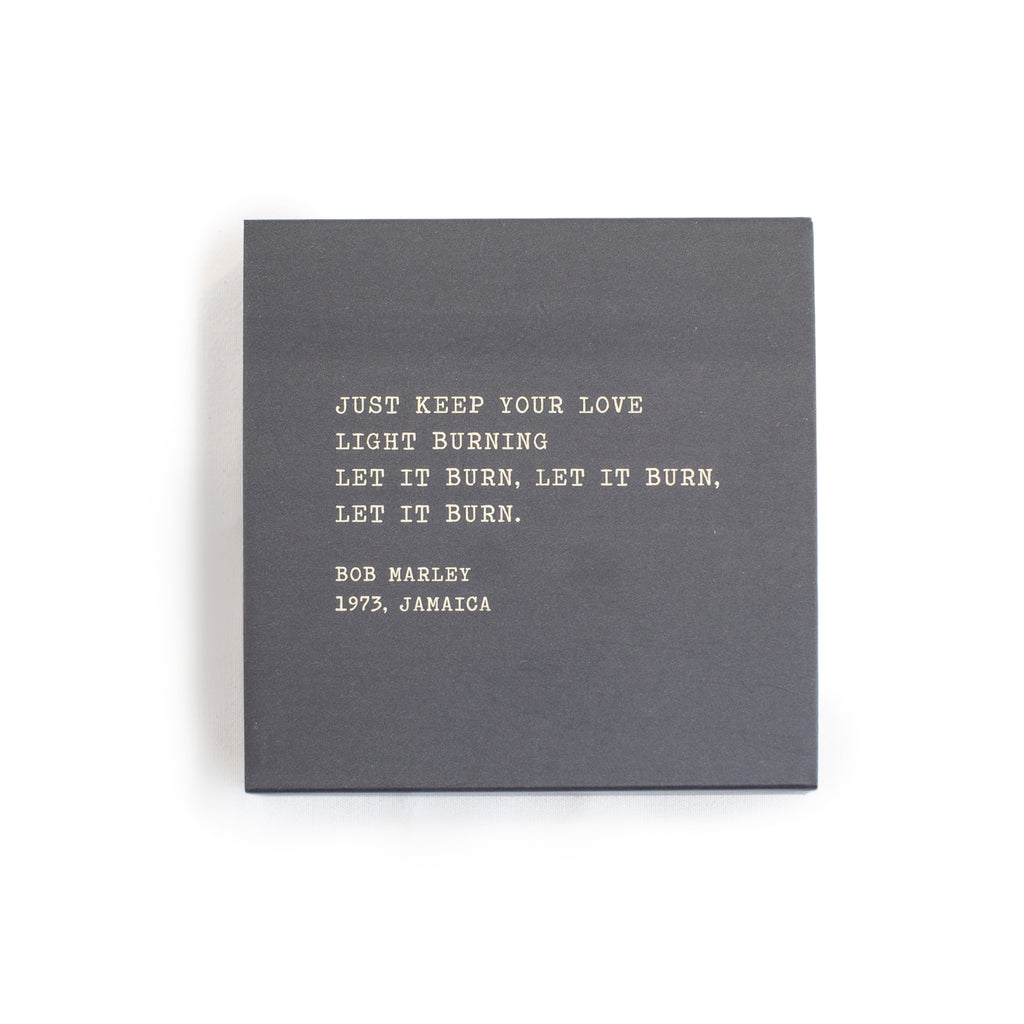 JUST KEEP YOUR LOVE
LIGHT BURNING
LET IT BURN, LET IT BURN,
LET IT BURN.
BOB MARLEY
1973, JAMAICA